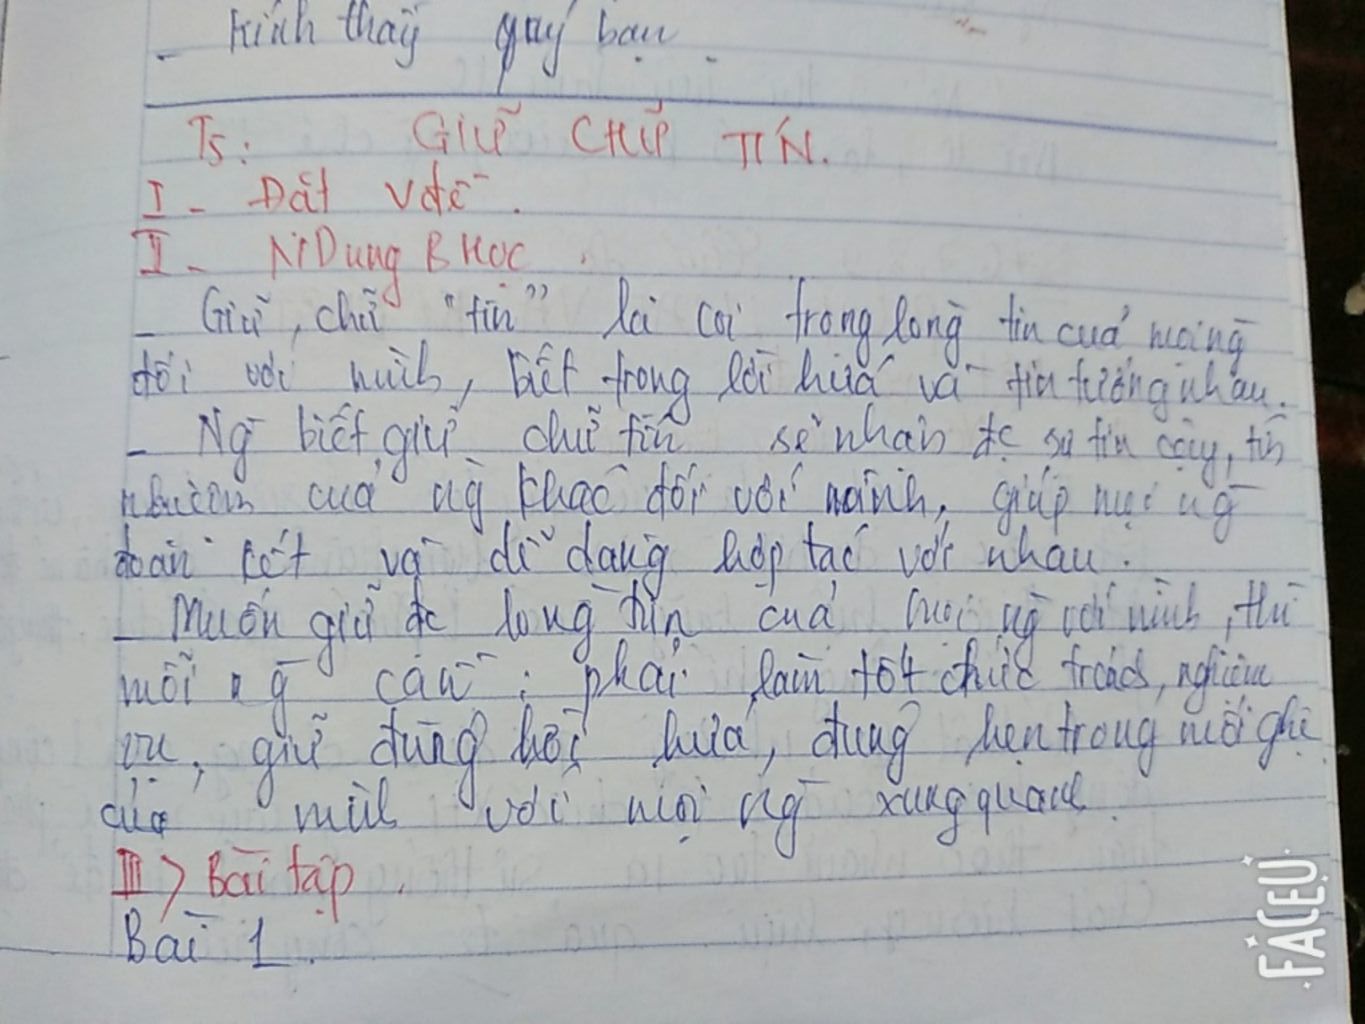 - Kính thầy quý bạn.
T5: GIỮ CHỮ TÍN.
I - Đặt vđề.
II - NDung BHọc.
- Giữ, chữ "tín" là coi trọng lòng tin của mọi ng
đối với mình, biết trọng lời hứa và tin tưởng nhau.
- Ng biết giữ chữ tín sẽ nhận đc sự tin cậy, tín
nhiệm của ng khác đối với mình, giúp mọi ng
đoàn kết và dễ dàng hợp tác với nhau.
- Muốn giữ đc lòng tin của mọi ng với mình, thì
mỗi ng cần: phải làm tốt chức trách, nghiệm
vụ, giữ đúng lời hứa, đúng hẹn trong mối qhệ
của mình với mọi ng xung quanh.
III> Bài tập.
Bài 1.
FACEU